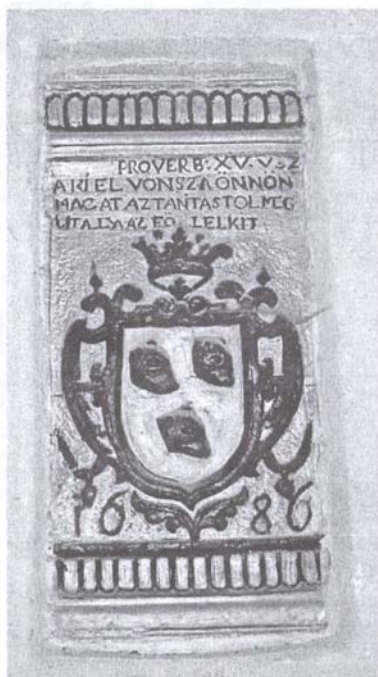 PROVERB: XV. V. 32
A KI EL VONSZA ÖNNÖN
MAGAT AZ TANTASTOL MEG
UTALYA AZ EÖ LELKIT
1686